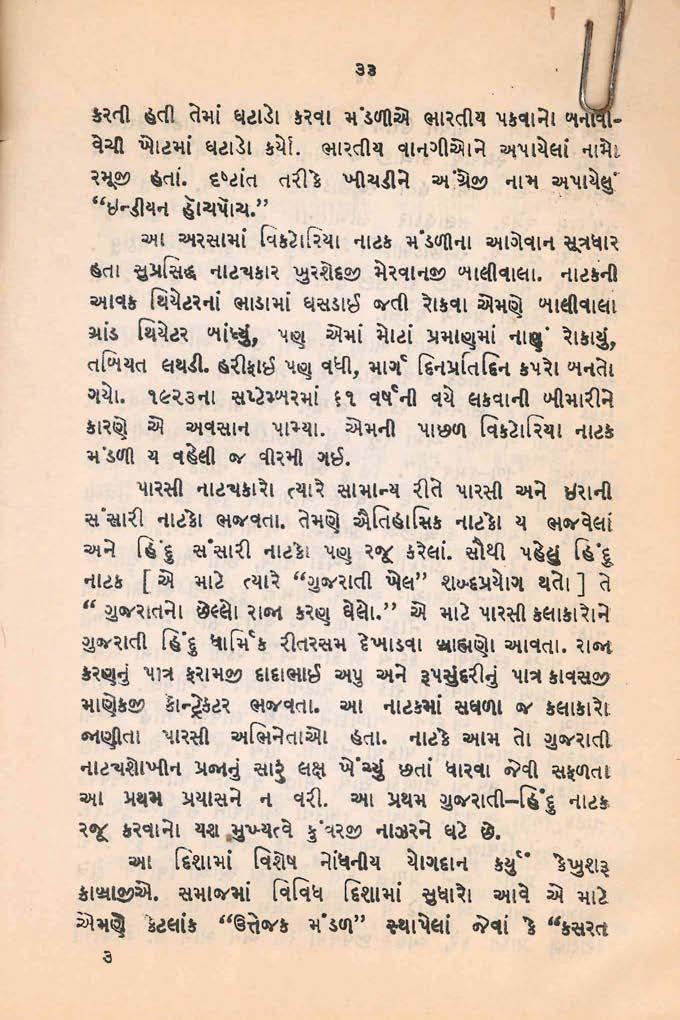 ૩૩
કરતી હતી તેમાં ઘટાડો કરવા મંડળીએ ભારતીય પકવાનો બનાવી-
વેચી ખોટમાં ઘટાડો કર્યો. ભારતીય વાનગીઓને અપાયેલાં નામો
રમૂજી હતાં. દષ્ટાંત તરીકે ખીચડીને અંગ્રેજી નામ અપાયેલું
“ઇન્ડીયન હૉચપૉચ.”
આ અરસામાં વિકટોરિયા નાટક મંડળીના આગેવાન સૂત્રધાર
હતા સુપ્રસિદ્ધ નાટયકાર ખુરશેદજી મેરવાનજી બાલીવાલા. નાટકની
આવક થિયેટરનાં ભાડામાં ઘસડાઈ જતી રોકવા એમણે બાલીવાલા
ગ્રાંડ થિયેટર બાંધ્યું, પણ એમાં મોટાં પ્રમાણમાં નાણું રોકાયું,
તબિયત લથડી. હરીફાઈ પણ વધી, માર્ગ દિનપ્રતિદિન કપરો બનતો
ગયો. ૧૯૨૩ના સપ્ટેમ્બરમાં ૬૧ વર્ષની વયે લકવાની બીમારીને
કારણે એ અવસાન પામ્યા. એમની પાછળ વિકટોરિયા નાટક
મંડળી ય વહેલી જ વીરમી ગઈ.
પારસી નાટયકારો ત્યારે સામાન્ય રીતે પારસી અને ઇરાની
સંસારી નાટકો ભજવતા. તેમણે ઐતિહાસિક નાટકો ય ભજવેલાં
અને હિંદુ સંસારી નાટકો પણ રજૂ કરેલાં. સૌથી પહેલું હિંદુ
નાટક [ એ માટે ત્યારે “ગુજરાતી ખેલ” શબ્દપ્રયોગ થતો ] તે
“ ગુજરાતનો છેલ્લો રાજા કરણ ઘેલો.” એ માટે પારસી કલાકારોને
ગુજરાતી હિંદુ ધાર્મિક રીતરસમ દેખાડવા બ્રાહ્મણો આવતા. રાજા
કરણનું પાત્ર ફરામજી દાદાભાઈ અપુ અને રૂપસુંદરીનું પાત્ર કાવસજી
માણેકજી કૉન્ટ્રેકટર ભજવતા. આ નાટકમાં સઘળા જ કલાકારો
જાણીતા પારસી અભિનેતાઓ હતા. નાટકે આમ તો ગુજરાતી
નાટયશોખીન પ્રજાનું સારું લક્ષ ખેંચ્યું છતાં ધારવા જેવી સફળતા
આ પ્રથમ પ્રયાસને ન વરી. આ પ્રથમ ગુજરાતી–હિંદુ નાટક
રજૂ કરવાનો યશ મુખ્યત્વે કુંવરજી નાઝરને ઘટે છે.
આ દિશામાં વિશેષ નોંધનીય યોગદાન કર્યું કેખુશરૂ
કાબ્રાજીએ. સમાજમાં વિવિધ દિશામાં સુધારો આવે એ માટે
એમણે કેટલાંક “ઉત્તેજક મંડળ” સ્થાપેલાં જેવાં કે “કસરત
૩